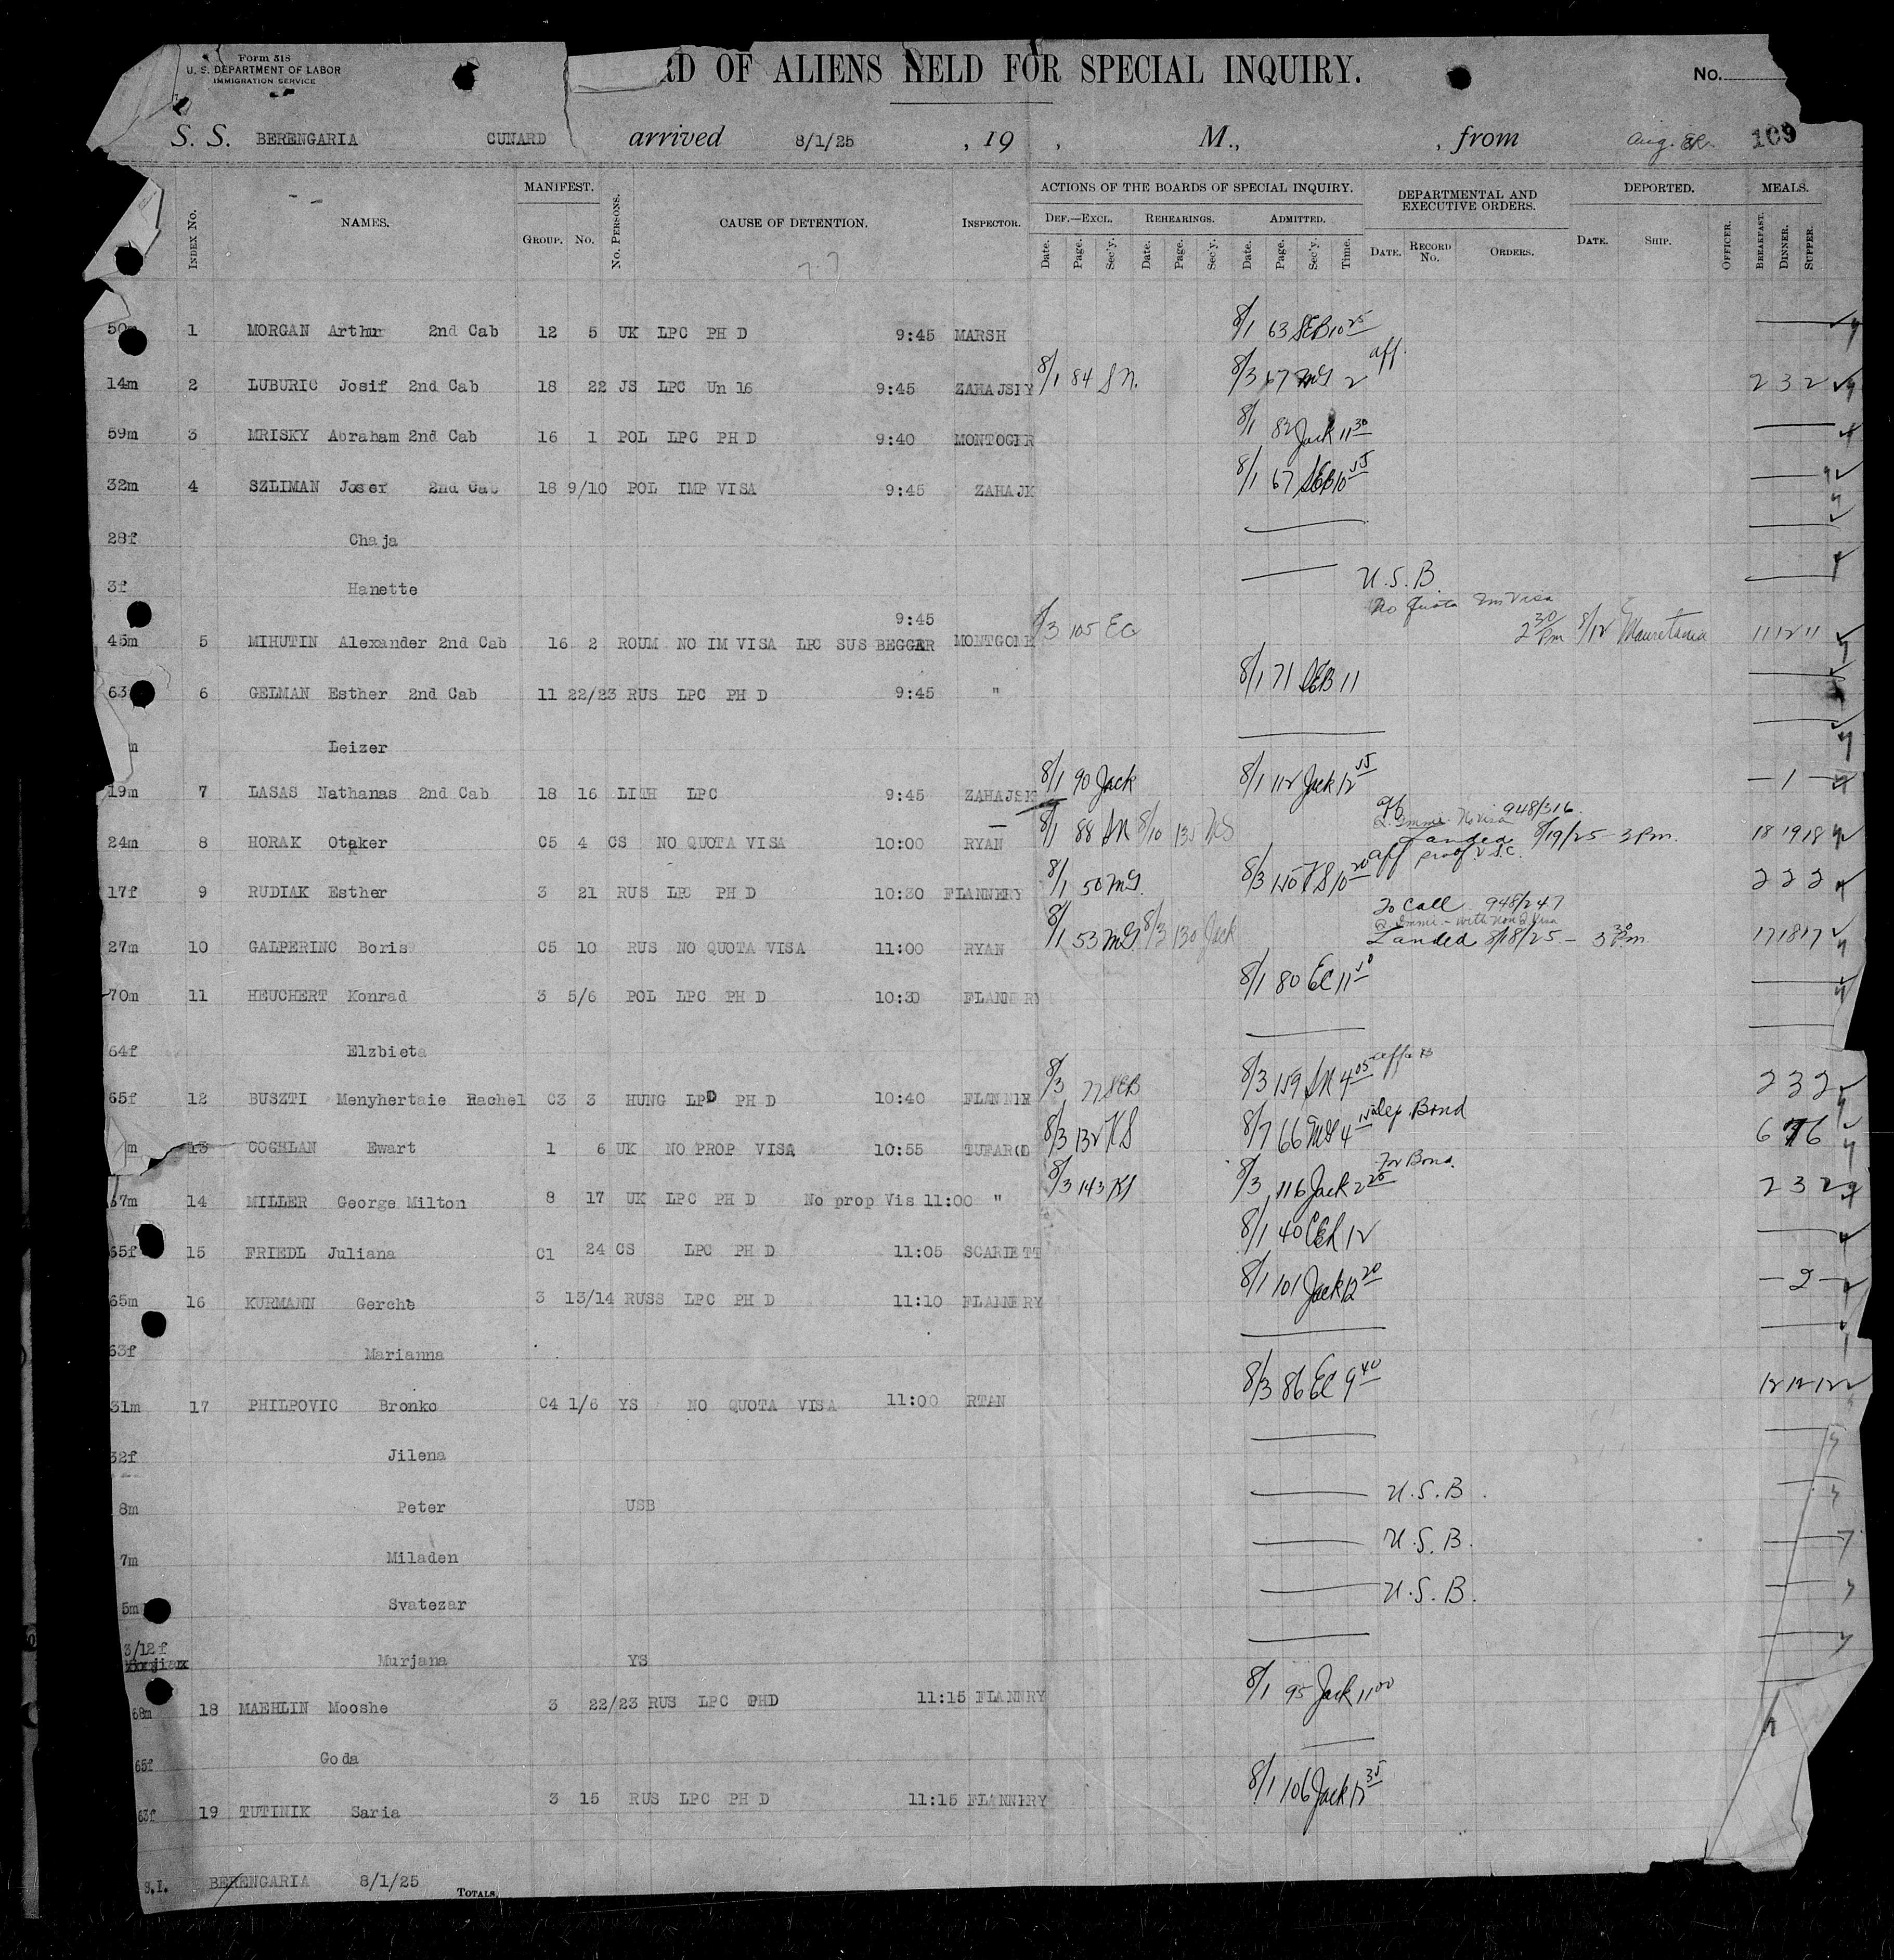 Form 518
U. S. DEPARTMENT OF LABOR
IMMIGRATION SERVICE
RD OF ALIENS HELD FOR SPECIAL INQUIRY.
No.
S. S. BERENGARIA CUNARD arrived 8/1/25 , 19 , M., , from Aug. 109
Index No. NAMES. MANIFEST. Group. No. No. Persons. CAUSE OF DETENTION. Inspector. ACTIONS OF THE BOARDS OF SPECIAL INQUIRY. DEPARTMENTAL AND EXECUTIVE ORDERS. DEPORTED. MEALS.
Def.—Excl. Rehearings. Admitted.
Date. Page. Sec'y. Date. Page. Sec'y. Date. Page. Sec'y. Time. Date. Record No. Orders. Date. Ship. Officer. Breakfast. Dinner. Supper.
50m 1 MORGAN Arthur 2nd Cab 12 5 UK LPC PH D 9:45 MARSH 8/1 63 SEB 10 25
14m 2 LUBURIC Josif 2nd Cab 18 22 JS LPC Un 16 9:45 ZAHAJSIY 8/1 84 S N. 8/3 67 MG 2 aff. 2 3 2
59m 3 MRISKY Abraham 2nd Cab 16 1 POL LPC PH D 9:40 MONTOGER 8/1 82 Jack 11 30
32m 4 SZLIMAN Josef 2nd Cab 18 9/10 POL IMP VISA 9:45 ZAHAJK 8/1 67 SEB 10 55
28f Chaja
3f Hanette U.S.B
45m 5 MIHUTIN Alexander 2nd Cab 16 2 ROUM NO IM VISA LPC SUS BEGGAR 9:45 MONTGOME 8/3 105 EC No Quota Im Visa 2 30 Pm 8/12 Mauretania 11 12 11
63 6 GELMAN Esther 2nd Cab 11 22/23 RUS LPC PH D 9:45 " 8/1 71 SEB 11
m Leizer
19m 7 LASAS Nathanas 2nd Cab 18 16 LITH LPC 9:45 ZAHAJSK 8/1 90 Jack 8/1 112 Jack 12 55 1
24m 8 HORAK Otaker C5 4 CS NO QUOTA VISA 10:00 RYAN 8/1 88 SN 8/10 135 948/316 Landed 8/19/25 - 3 Pm. 18 19 18
17f 9 RUDIAK Esther 3 21 RUS LPC PH D 10:30 FLANNERY 8/1 50 MG. 8/3 150 KS 10 20 aff proof 2 2 2
27m 10 GALPERINC Boris C5 10 RUS NO QUOTA VISA 11:00 RYAN 8/1 53 MG 8/3 130 Jack To Call 948/247 Landed 8/18/25 - 3 30 Pm 17 18 17
70m 11 HEUCHERT Konrad 3 5/6 POL LPC PH D 10:30 FLANNERY 8/1 80 EC 11 50
64f Elzbieta
65f 12 BUSZTI Menyhertaie Rachel C3 3 HUNG LPD PH D 10:40 FLANNER 8/3 77 SEB 8/3 159 SN 4 05 2 3 2
m 13 COGHLAN Ewart 1 6 UK NO PROP VISA 10:55 TUFARO 8/3 132 KS 8/7 66 MG 4 15 Dep. Bond 6 7 6
67m 14 MILLER George Milton 8 17 UK LPC PH D No prop Vis 11:00 " 8/3 143 KS 8/3 116 Jack 2 25 For Bond. 2 3 2
65f 15 FRIEDL Juliana C1 24 CS LPC PH D 11:05 SCARLETT 8/1 40 CEL 12
65m 16 KURMANN Gerche 3 13/14 RUSS LPC PH D 11:10 FLANNERY 8/1 101 Jack 12 20 2
63f Marianna
31m 17 PHILPOVIC Bronko C4 1/6 YS NO QUOTA VISA 11:00 RTAN 8/3 86 EC 9 40 12 12 12
32f Jilena
8m Peter USB U.S.B.
7m Miladen U.S.B.
5m Svatezar U.S.B.
3/12 f Murjana YS
68m 18 MAEHLIN Mooshe 3 22/23 RUS LPC PHD 11:15 FLANNRY 8/1 95 Jack 11 00
65f Goda
63f 19 TUTINIK Saria 3 15 RUS LPC PH D 11:15 FLANNERY 8/1 106 Jack 12 35
S.I. BERENGARIA 8/1/25 Totals